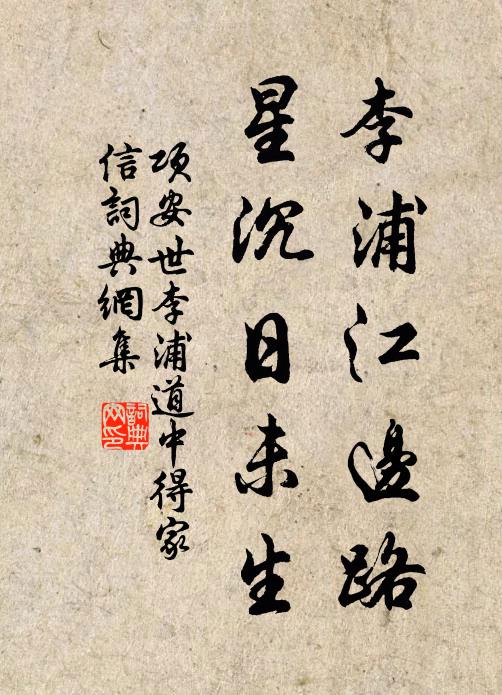 李浦江邊路
星沉日未生
項安世李浦道中得家
信詞典網集
詞典網印